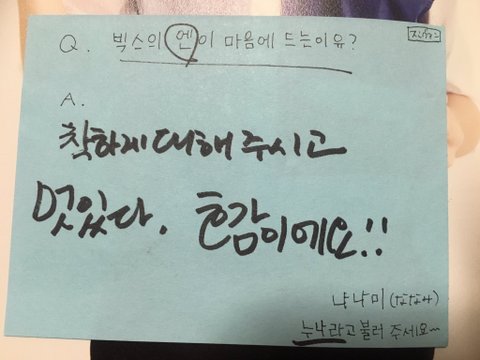 Q. 빅스의 엔이 마음에 드는이유?
A.
착하게대해주시고
멋있다. 호감이에요!!
냐나미 (ななみ)
누나라고불러 주세요~